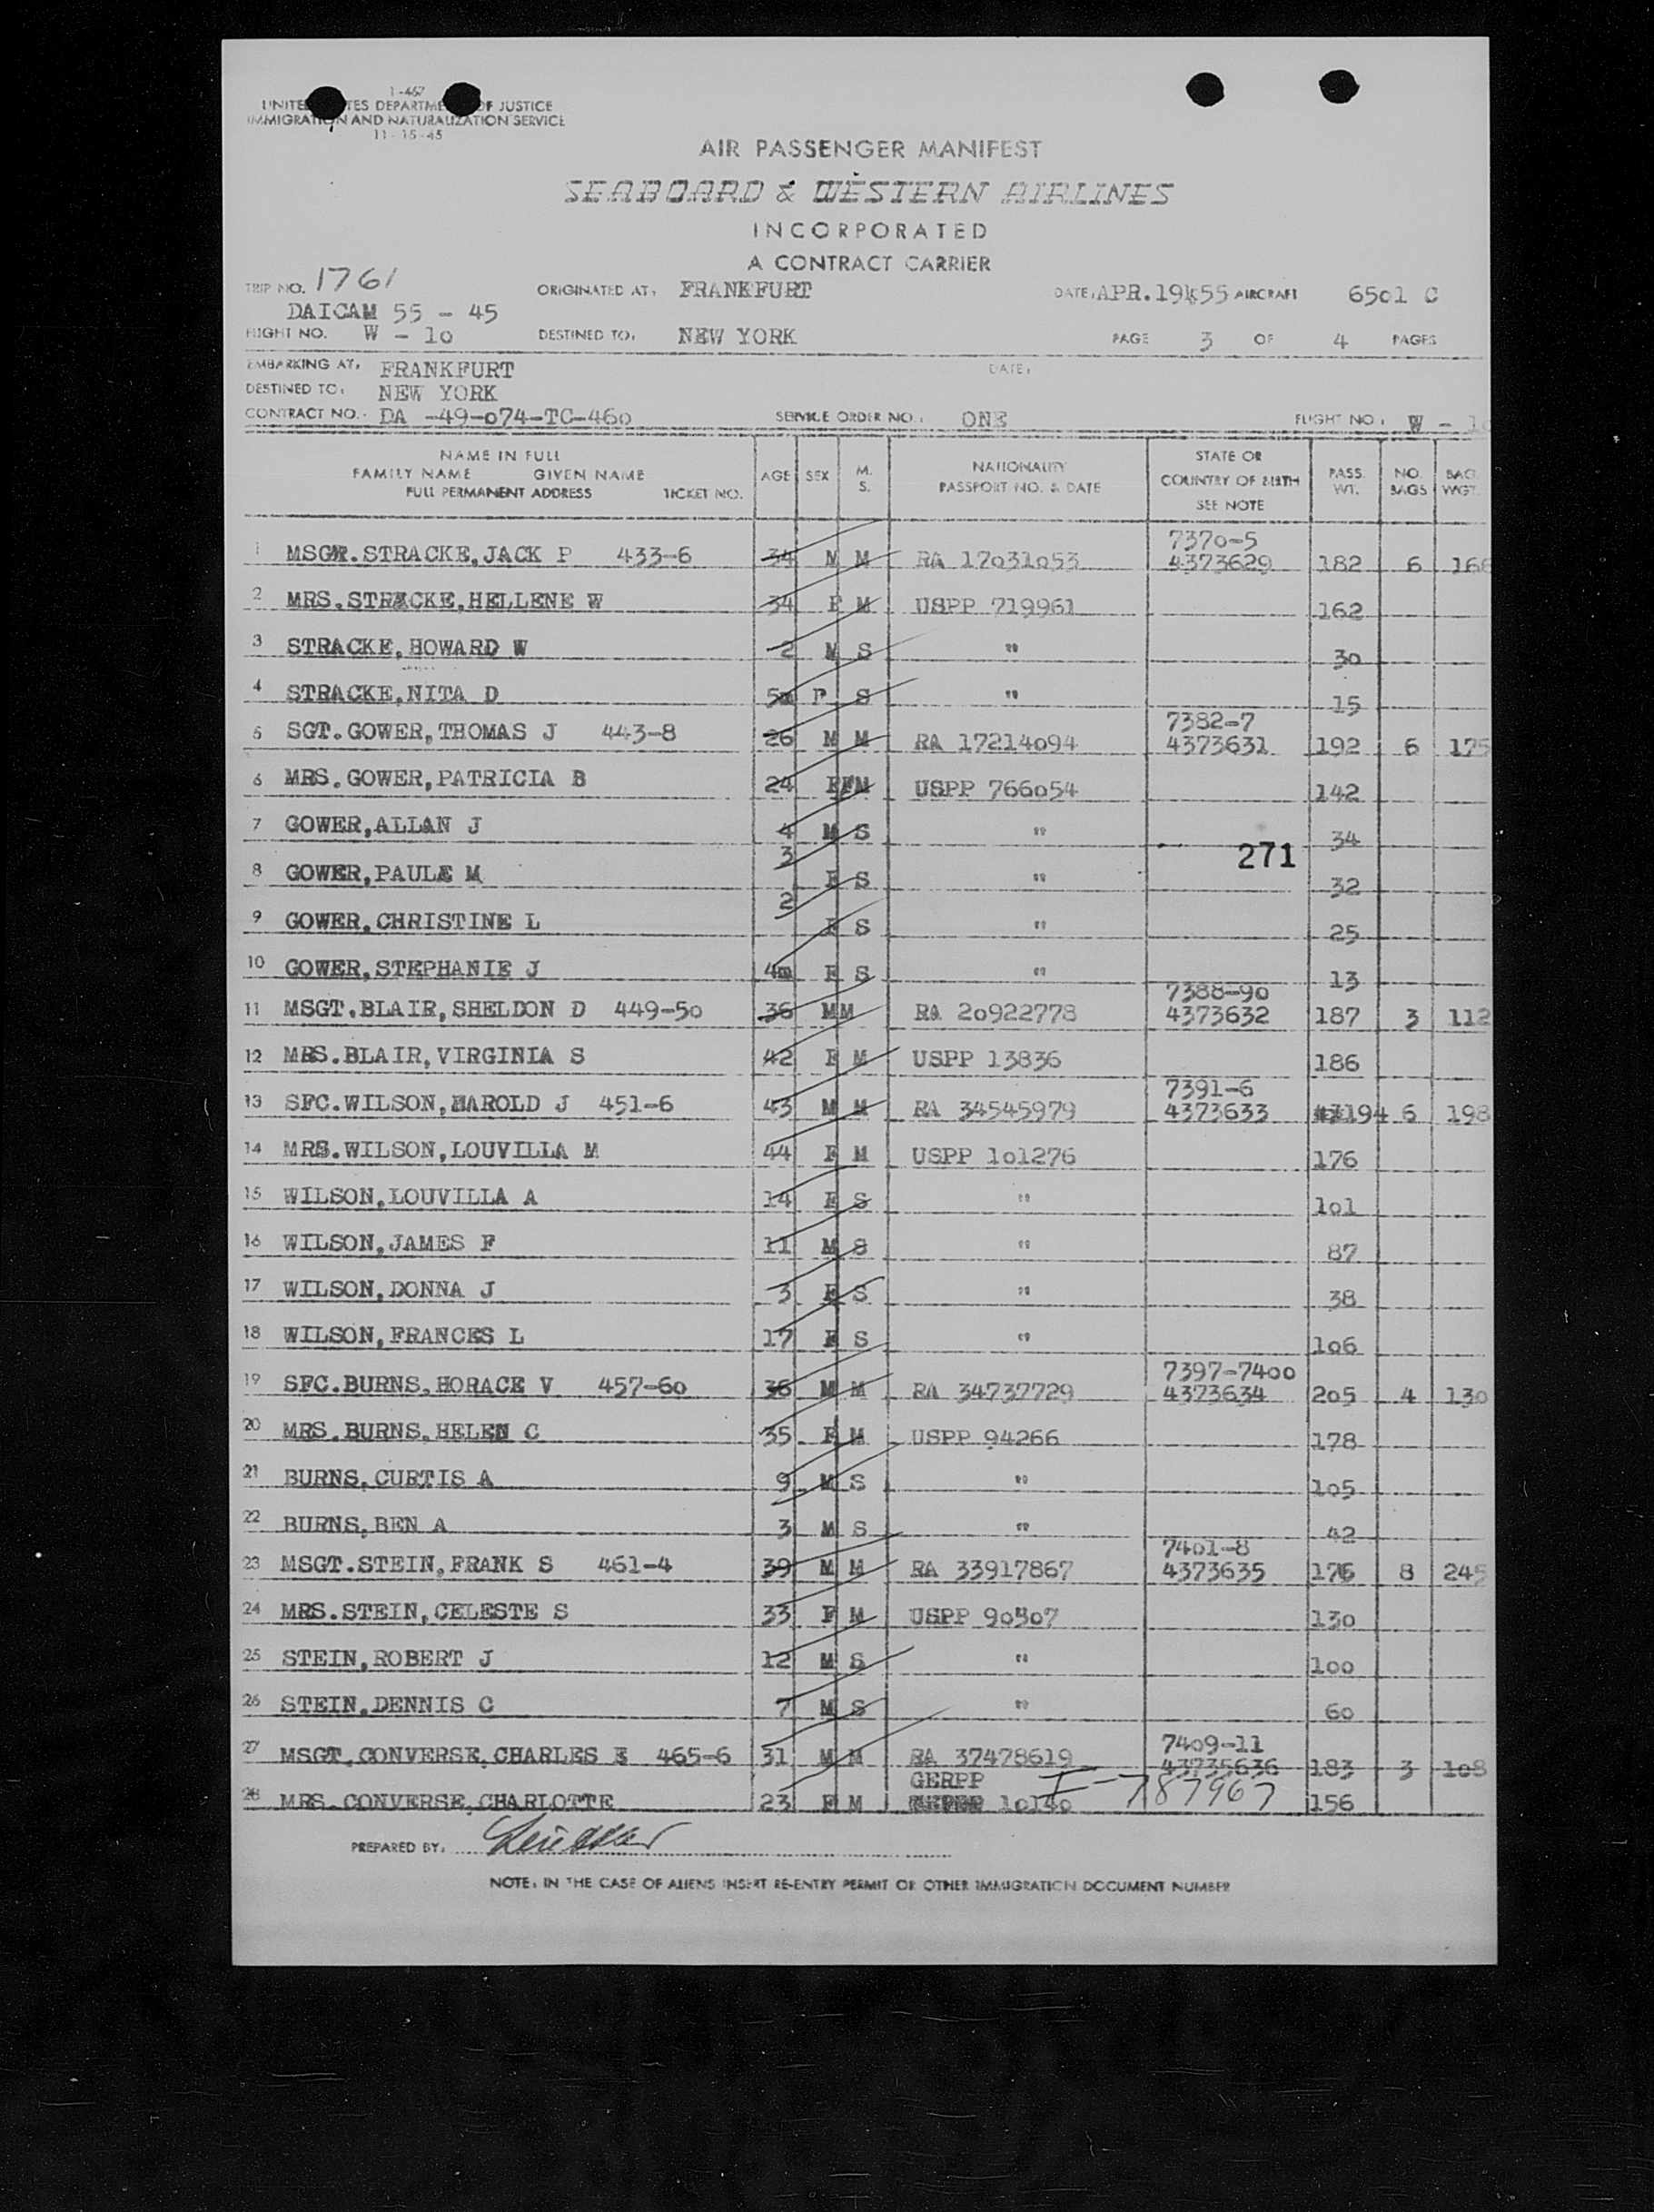 I-467
UNITED STATES DEPARTMENT OF JUSTICE
IMMIGRATION AND NATURALIZATION SERVICE
11-15-45
AIR PASSENGER MANIFEST
SEABOARD & WESTERN AIRLINES
INCORPORATED
A CONTRACT CARRIER
TRIP NO. 1761 ORIGINATED AT: FRANKFURT DATE: APR.19 55 AIRCRAFT 6501 C
DAICAM 55 - 45
FLIGHT NO. W - 1o DESTINED TO: NEW YORK PAGE 3 OF 4 PAGES
EMBARKING AT: FRANKFURT DATE:
DESTINED TO: NEW YORK
CONTRACT NO.: DA -49-o74-TC-46o SERVICE ORDER NO.: ONE FLIGHT NO: W - 1o
NAME IN FULL
FAMILY NAME GIVEN NAME
FULL PERMANENT ADDRESS TICKET NO. AGE SEX M. S. NATIONALITY PASSPORT NO. & DATE STATE OR COUNTRY OF BIRTH SEE NOTE PASS. WT. NO. BAGS BAG. WGT.
7370-5
1 MSGT.STRACKE,JACK P 433-6 34 M M RA 17o31o53 4373629 182 6 166
2 MRS.STRACKE,HELLENE W 34 F M USPP 719961 162
3 STRACKE,HOWARD W 2 M S " 3o
4 STRACKE,NITA D 5m F S " 15
7382-7
5 SGT.GOWER,THOMAS J 443-8 26 M M RA 17214o94 4373631 192 6 175
6 MRS.GOWER,PATRICIA B 24 F M USPP 766o54 142
7 GOWER,ALLAN J 4 M S " 34
271
8 GOWER,PAULE M 3 F S " 32
9 GOWER,CHRISTINE L 2 F S " 25
10 GOWER,STEPHANIE J 4m F S " 13
7388-9o
11 MSGT.BLAIR,SHELDON D 449-5o 36 M M RA 2o922778 4373632 187 3 112
12 MRS.BLAIR,VIRGINIA S 42 F M USPP 13836 186
7391-6
13 SFC.WILSON,HAROLD J 451-6 43 M M RA 34545979 4373633 194 6 198
14 MRS.WILSON,LOUVILLA M 44 F M USPP 1o1276 176
15 WILSON,LOUVILLA A 14 F S " 1o1
16 WILSON,JAMES F 11 M S " 87
17 WILSON,DONNA J 3 F S " 38
18 WILSON,FRANCES L 17 F S " 1o6
7397-74oo
19 SFC.BURNS,HORACE V 457-6o 36 M M RA 34737729 4373634 2o5 4 13o
20 MRS.BURNS,HELEN C 35 F M USPP 94266 178
21 BURNS,CURTIS A 9 M S " 1o5
22 BURNS,BEN A 3 M S " 42
74o1-8
23 MSGT.STEIN,FRANK S 461-4 39 M M RA 33917867 4373635 176 8 245
24 MRS.STEIN,CELESTE S 33 F M USPP 9o5o7 13o
25 STEIN,ROBERT J 12 M S " 1oo
26 STEIN,DENNIS C 7 M S " 6o
74o9-11
27 MSGT.CONVERSE,CHARLES E 465-6 31 M M RA 37478619 43735636 183 3 1o8
GERPP
28 MRS.CONVERSE,CHARLOTTE 23 F M I-787967 156
PREPARED BY:
NOTE: IN THE CASE OF ALIENS INSERT RE-ENTRY PERMIT OR OTHER IMMIGRATION DOCUMENT NUMBER